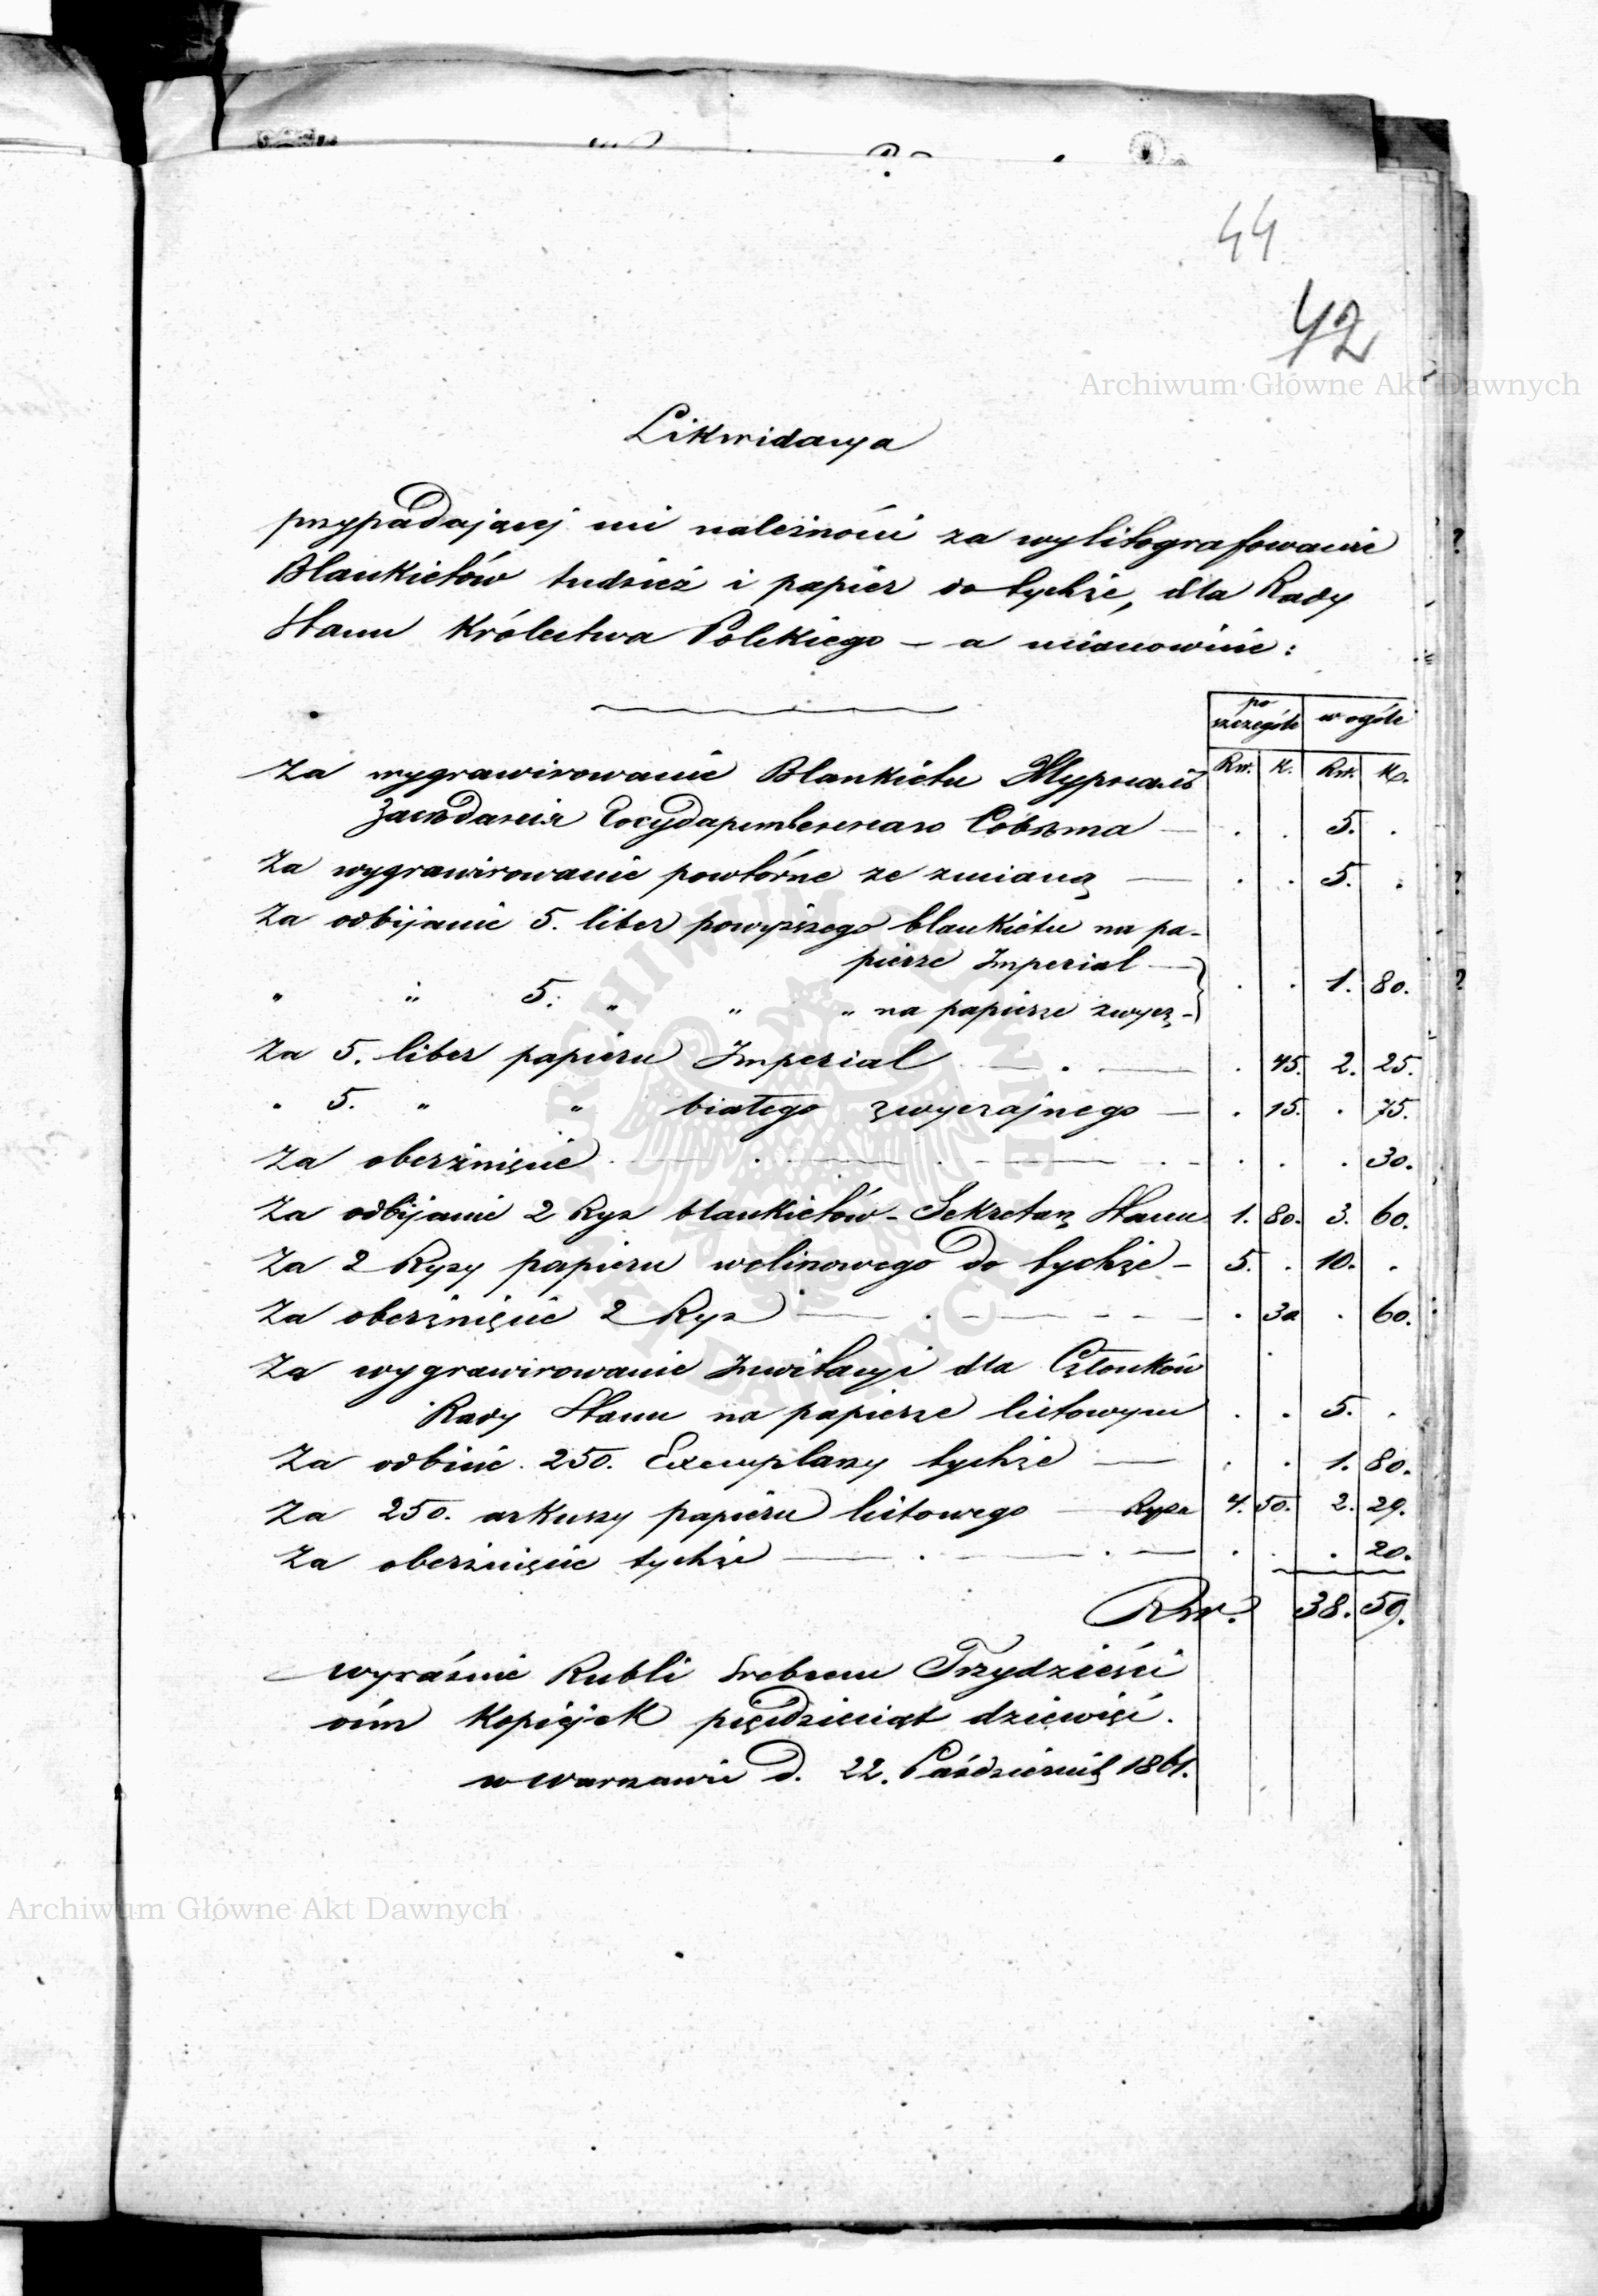 44
42
Archiwum Główne Akt Dawnych
Likwidacya
przypadającej mi należności za wylitografowanie
Blankietów tudzież i papier do tychże, dla Rady
Stanu Królestwa Polskiego — a mianowicie:
po szczególe w ogóle
Rsr. K. Rsr. K.
Za wygrawirowanie Blankietu Журналъ
Заседанія Государственнаго Совѣта — . . 5. .
Za wygrawirowanie powtórne ze zmianą — . . 5. .
Za odbijanie 5. liber powyższego blankietu na pa-
pierze Imperial —
" " 5. " " " na papierze zwycz. - . . 1. 80.
Za 5. liber papieru Imperial — . — . 45. 2. 25.
" 5. " " białego zwyczajnego — . 15. . 75.
Za oberznięcie . — . — . — . - . . . 30.
Za odbijanie 2 Ryz blankietów - Sekretarz Stanu 1. 80. 3. 60.
Za 2 Ryzy papieru welinowego do tychże - 5. . 10. .
Za oberżnięcie 2 Ryz — . — . 30 . 60.
Za wygrawirowanie Inwitacyi dla Członków
Rady Stanu na papierze listowym . . 5. .
Za odbicie 250. Exemplarzy tychże — . . 1. 80.
Za 250. arkuszy papieru listowego — Ryza 4. 50. 2. 29.
Za oberżnięcie tychże — . — . — . . . 20.
Rsr. 38. 59.
wyraźnie Rubli srebrem Trzydzieści
ośm Kopiejek pięćdziesiąt dziewięć.
w Warszawie d. 22. Października 1861.
Archiwum Główne Akt Dawnych
ARCHIWUM GŁÓWNE AKT DAWNYCH